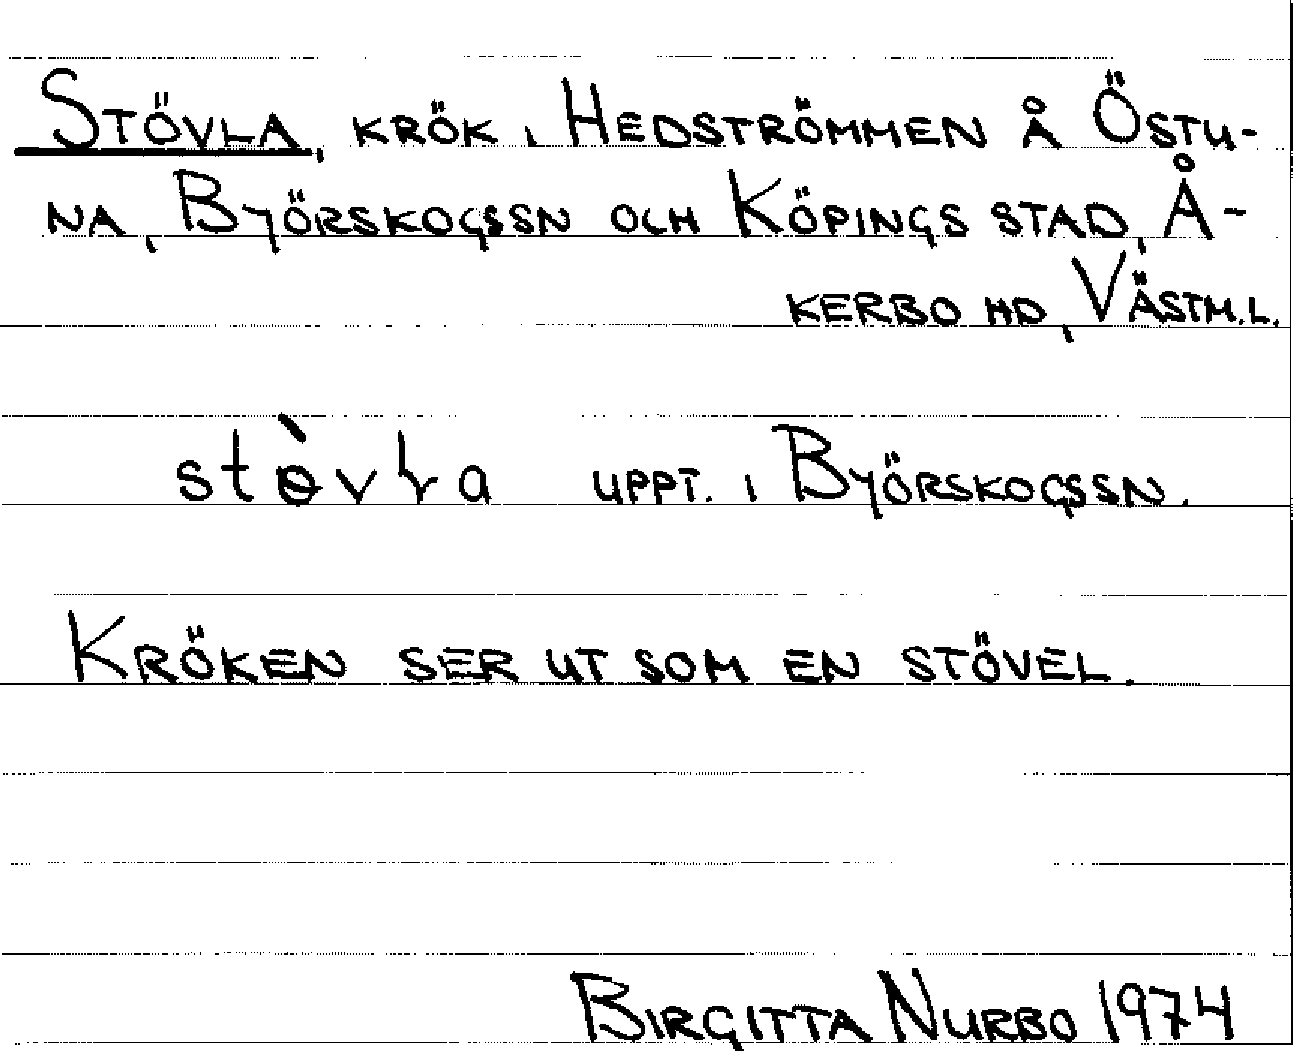 STÖVLA, KRÖK I HEDSTRÖMMEN Å ÖSTU-
NA, BYÖRSKOGSSN OCH KÖPINGS STAD, Å-
KERBO HD, VÄSTM.L.
stɵ̀vɫa UPPT. I BYÖRSKOGSSN.
KRÖKEN SER UT SOM EN STÖVEL.
BIRGITTA NURBO 1974